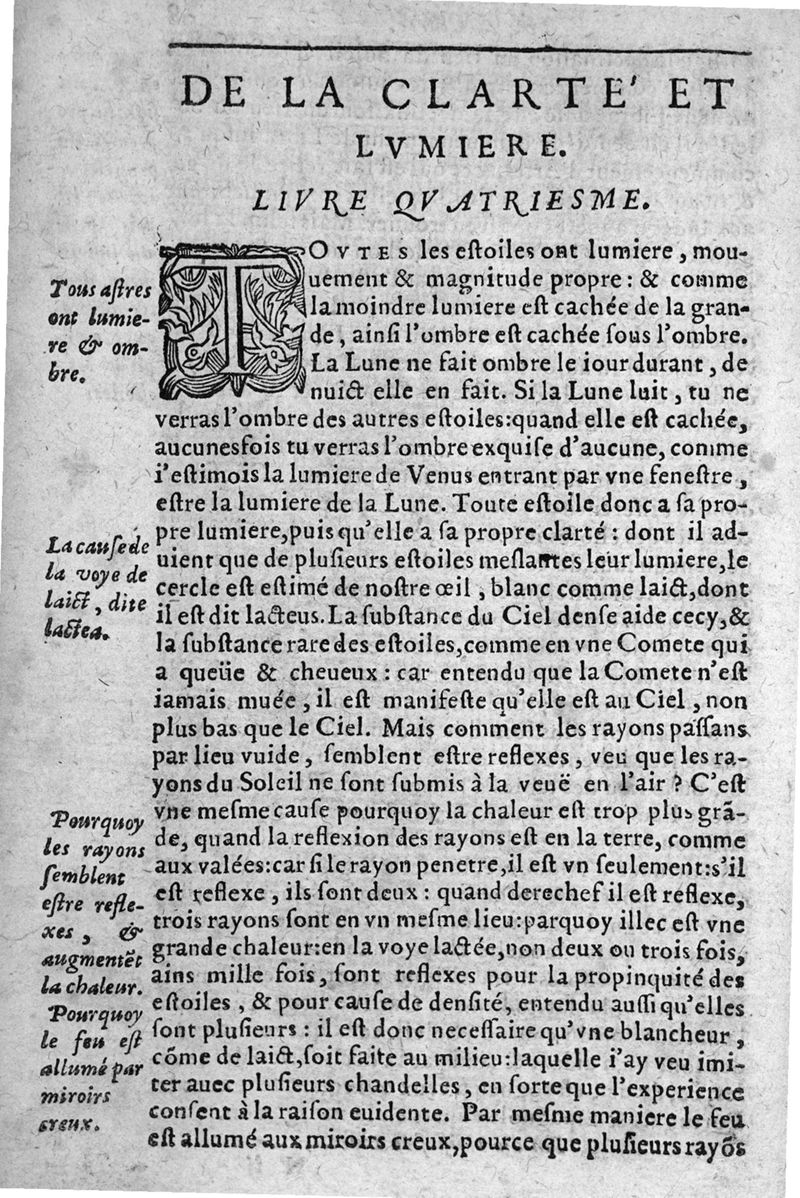 DE LA CLARTE' ET
LVMIERE.
LIVRE QVATRIESME.
Tous astres
ont lumie-
re & om-
bre.
TOVTES les eſtoiles ont lumiere, mou-
uement & magnitude propre: & comme
la moindre lumiere eſt cachée de la gran-
de, ainſi l'ombre eſt cachée ſous l'ombre.
La Lune ne fait ombre le iour durant, de
nuict elle en fait. Si la Lune luit, tu ne
verras l'ombre des autres eſtoiles: quand elle eſt cachée,
aucunesfois tu verras l'ombre exquiſe d'aucune, comme
i'eſtimois la lumiere de Venus entrant par vne feneſtre,
eſtre la lumiere de la Lune. Toute eſtoile donc a ſa pro-
pre lumiere, puis qu'elle a ſa propre clarté: dont il ad-
uient que de pluſieurs eſtoiles meſlantes leur lumiere, le
cercle eſt eſtimé de noſtre œil, blanc comme laict, dont
il eſt dit lacteus. La ſubſtance du Ciel denſe aide cecy, &
la ſubſtance rare des eſtoiles, comme en vne Comete qui
a queüe & cheueux: car entendu que la Comete n'eſt
iamais muée, il eſt manifeſte qu'elle eſt au Ciel, non
plus bas que le Ciel. Mais comment les rayons paſſans
par lieu vuide, ſemblent eſtre reflexes, veu que les ra-
yons du Soleil ne ſont ſubmis à la veuë en l'air? C'eſt
vne meſme cauſe pourquoy la chaleur eſt trop plus grã-
de, quand la reflexion des rayons eſt en la terre, comme
aux valées: car ſi le rayon penetre, il eſt vn ſeulement: s'il
eſt reflexe, ils ſont deux: quand derechef il eſt reflexe,
trois rayons ſont en vn meſme lieu: parquoy illec eſt vne
grande chaleur: en la voye lactée, non deux ou trois fois,
ains mille fois, ſont reflexes pour la propinquité des
eſtoiles, & pour cauſe de denſité, entendu auſſi qu'elles
ſont pluſieurs: il eſt donc neceſſaire qu'vne blancheur,
cõme de laict, ſoit faite au milieu: laquelle i'ay veu imi-
ter auec pluſieurs chandelles, en ſorte que l'experience
conſent à la raiſon euidente. Par meſme maniere le feu
eſt allumé aux miroirs creux, pource que pluſieurs rayõs
La cauſe de
la voye de
laict, dite
lactea.
Pourquoy
les rayons
ſemblent
eſtre refle-
xes, &
augmentẽt
la chaleur.
Pourquoy
le feu eſt
allumé par
miroirs
creux.